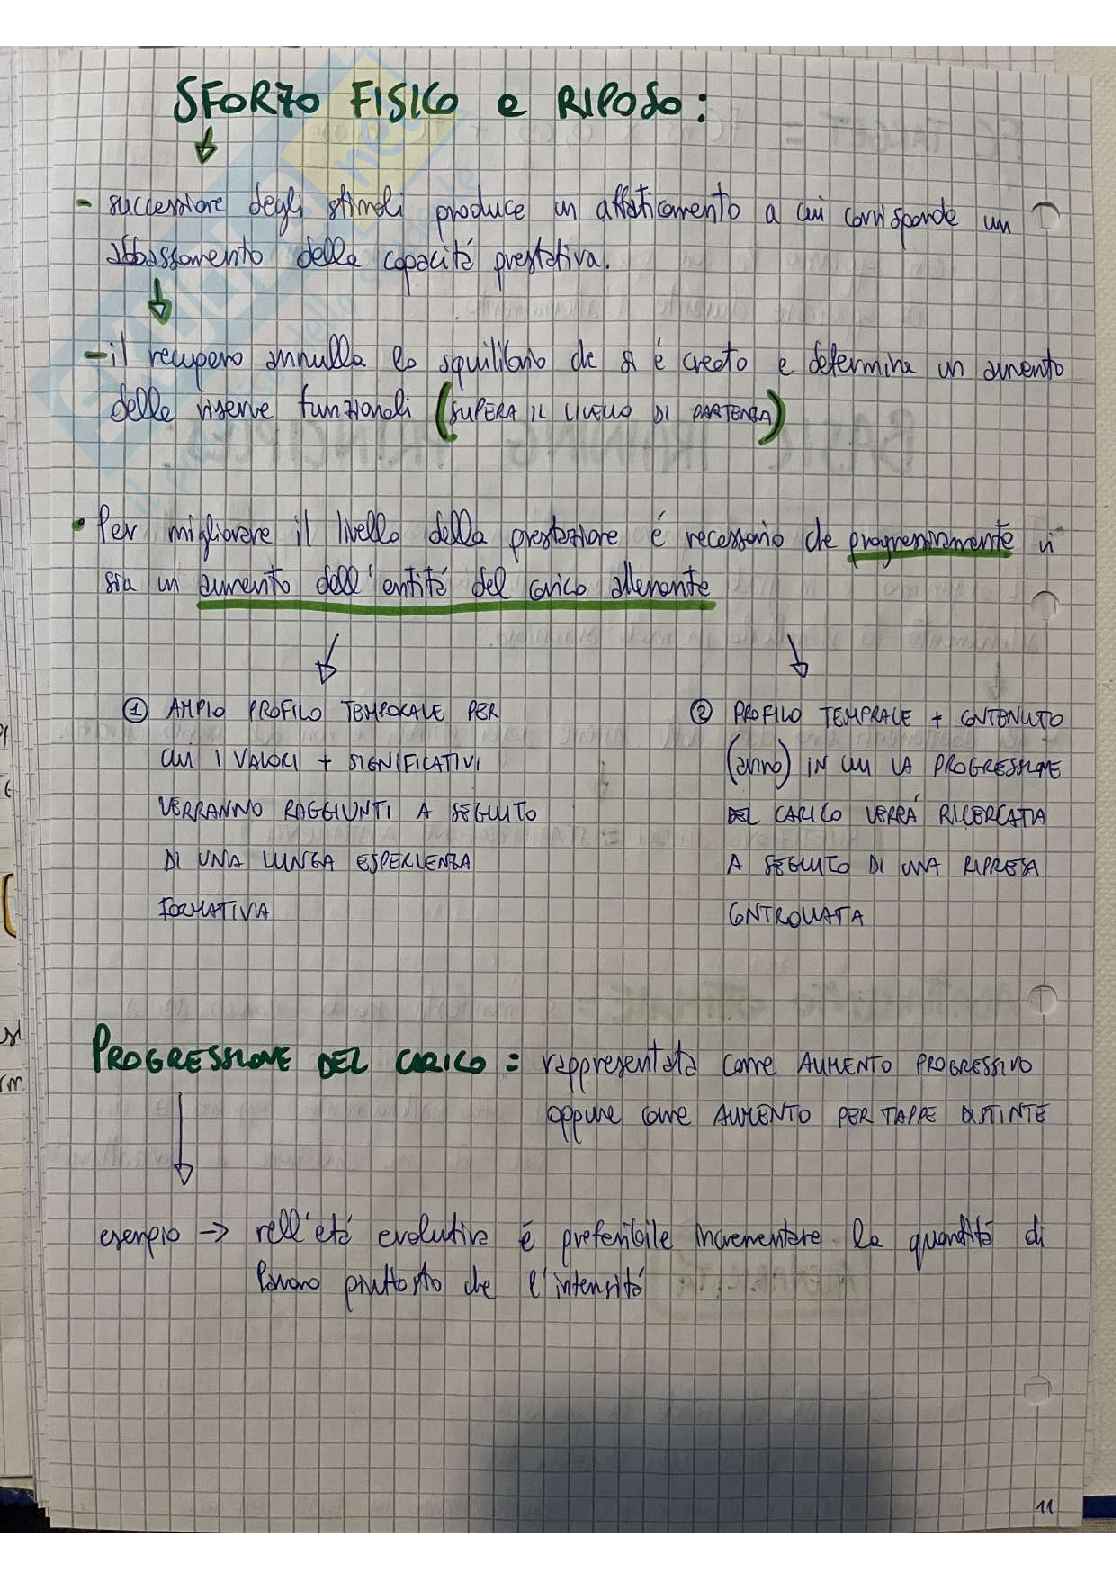 SFORZO FISICO e RIPOSO:
- successione degli stimoli produce un affaticamento a cui corrisponde un
abbassamento della capacità prestativa.
- il recupero annulla lo squilibrio che si è creato e determina un aumento
delle riserve funzionali (SUPERA IL LIVELLO DI PARTENZA)
• Per migliorare il livello della prestazione é necessario che progressivamente vi
sia un aumento dell'entità del carico allenante
① AMPIO PROFILO TEMPORALE PER
CUI I VALORI + SIGNIFICATIVI
VERRANNO RAGGIUNTI A SEGUITO
DI UNA LUNGA ESPERIENZA
FORMATIVA
② PROFILO TEMPRALE + CONTENUTO
(anno) IN CUI LA PROGRESSIONE
DEL CARICO VERRÀ RICERCATA
A SEGUITO DI UNA RIPRESA
CONTROLLATA
PROGRESSIONE DEL CARICO = rappresentata come AUMENTO PROGRESSIVO
oppure come AUMENTO PER TAPPE DISTINTE
esempio → nell'età evolutiva é preferibile incrementare la quantità di
lavoro piuttosto che l'intensità
11